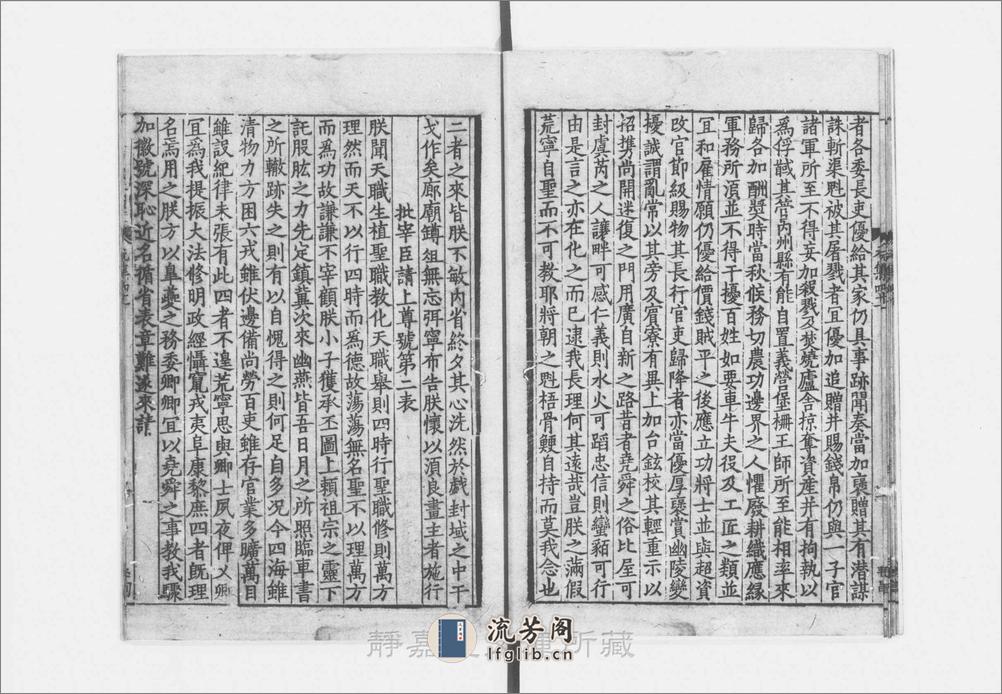 者各委長吏優給其家仍具事跡聞奏當加襃贈其有潜謀
誅斬渠魁被其屠戮者宜優加追贈并賜錢帛仍與一子官
諸軍所至不得妄加殺戮及焚燒廬舎掠奪資産并有拘執以
爲俘馘其管内州縣有能自置義營堡柵王師所至能相率來
歸各加酬奬時當秋候務切農功邊界之人懼廢耕織應緣
軍務所湏並不得干擾百姓如要車牛夫役及工匠之類並
宜和雇情願仍優給價錢賊平之後應立功將士並與超資
改官節級賜物其長行官吏歸降者亦當優厚襃賞幽陵變
擾誠謂亂常以其旁及賔寮有異上加台鉉校其輕重示以
招携尚開迷復之門用廣自新之路昔者堯舜之俗比屋可
封虞芮之人讓畔可感仁義則水火可蹈忠信則蠻貊可行
由是言之亦在化之而已逮我長理何其遠哉豈朕之滿假
荒寧自聖而不可教耶將朝之甡梧骨鯁自持而莫我念也
二者之來皆朕不敏内省終夕其心洗然於戲封域之中干
戈作矣廊廟鐏俎無忘弭寧布告朕懷以湏良畫主者施行
批宰臣請上尊號第二表
朕聞天職生植聖職教化天職舉則四時行聖職修則萬方
理然而天不以行四時而爲德故蕩蕩無名聖不以理萬方
而爲功故謙謙不宰顧朕小子獲承丕圖上賴祖宗之靈下
託股肱之力先定鎮冀次來幽燕皆吾日月之所照臨車書
之所轍跡失之則有以自愧得之則何足自多况今四海雖
清物力方困六戎雖伏邊備尚勞百吏雖存官業多曠萬目
雖設紀律未張有此四者不遑荒寧思與卿士夙夜俾乂卿
宜爲我提振大法修明政經懾寬戎夷阜康黎庶四者旣理
名焉用之朕方以臯夔之務委卿卿宜以堯舜之事教我驟
加徽號深恥近名循省表章難遂來請
靜嘉 所藏
流芳阁
lfglib.cn